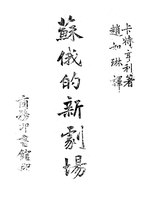 卡特亨利著
趙如琳譯
蘇俄的新劇場
商務印書館印